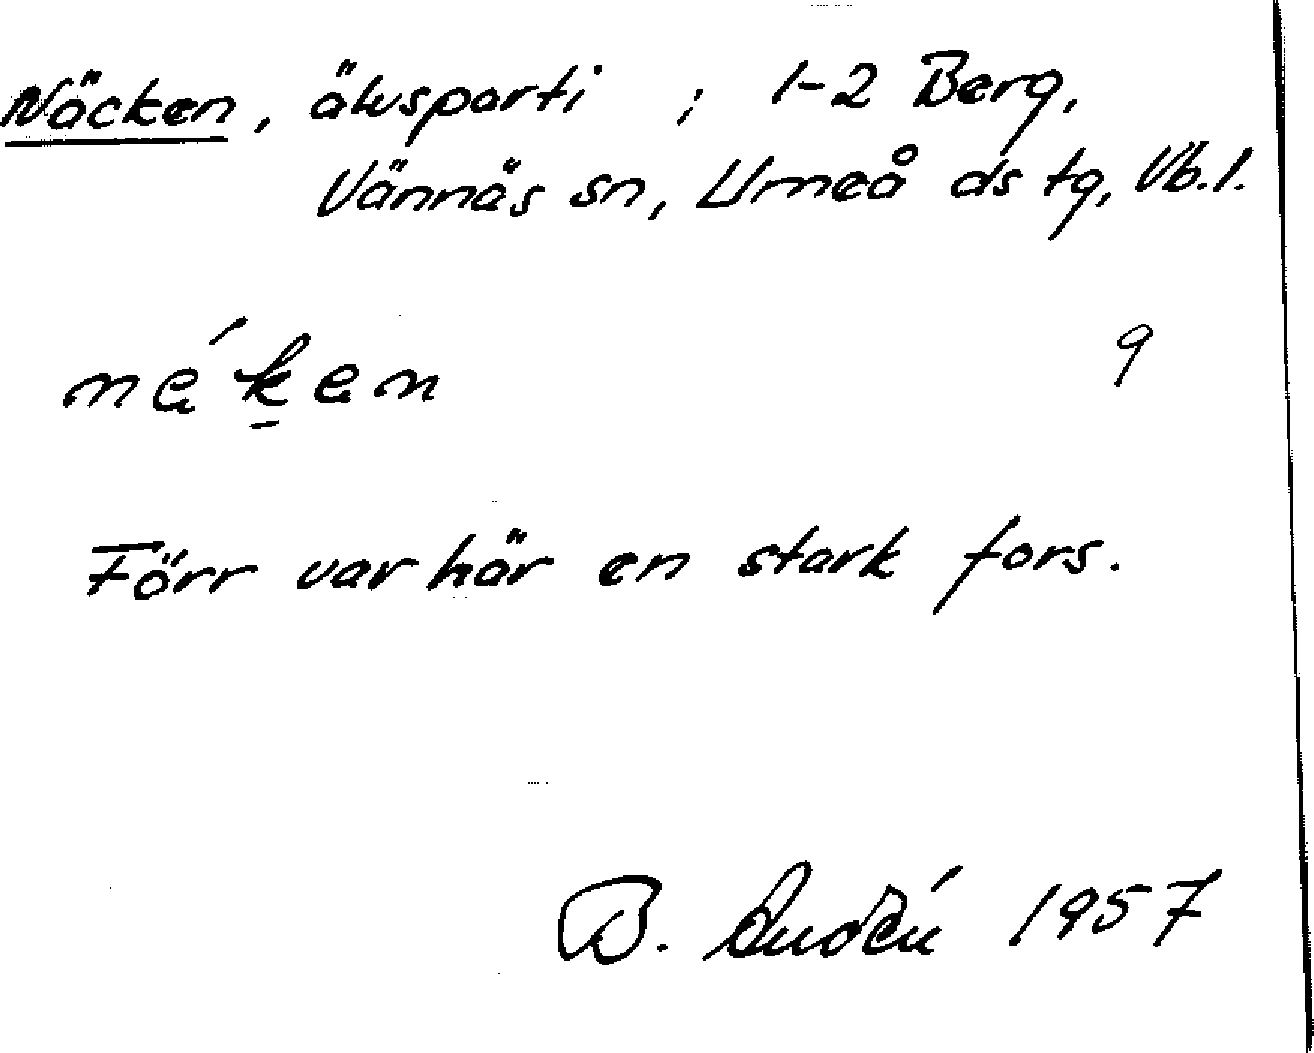 Näcken, älvsparti ; 1-2 Berg,
Vännäs sn, Umeå ds tg, Vb.l.
né̱ken 9
Förr var här en stark fors.
B. Audén 1957